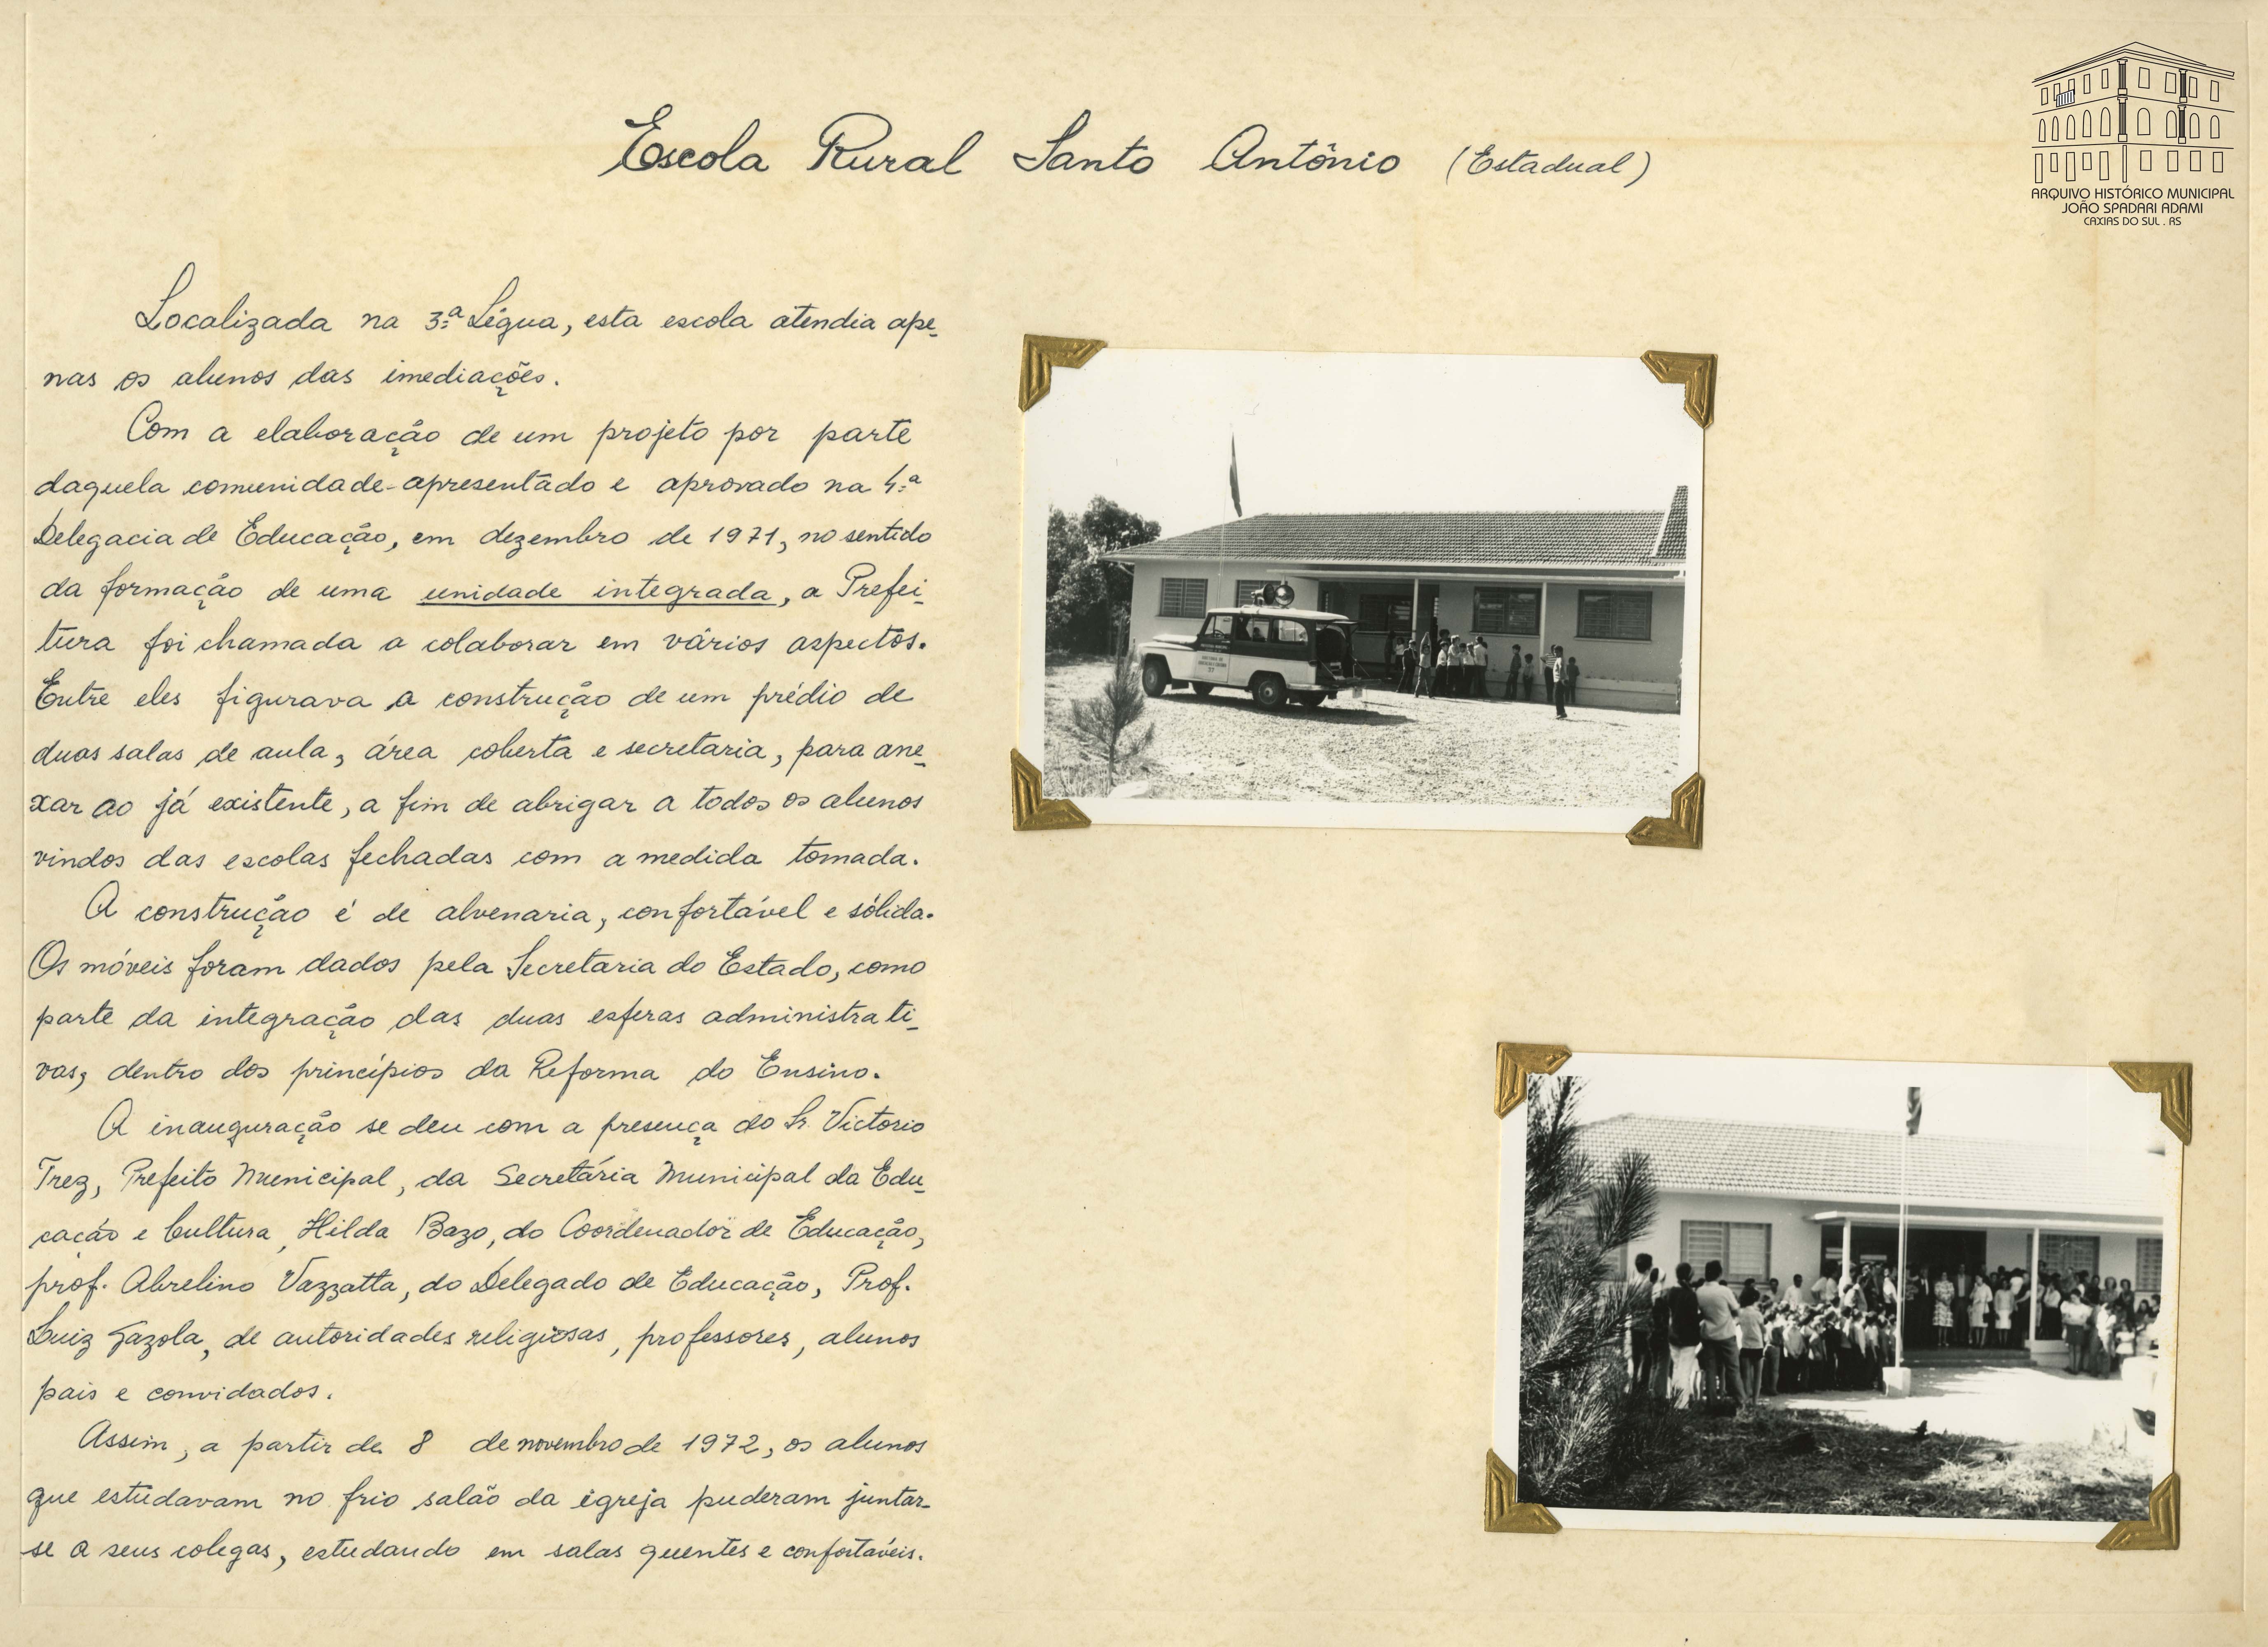 Escola Rural Santo Antônio (Estadual)
ARQUIVO HISTÓRICO MUNICIPAL
JOÃO SPADARI ADAMI
CAXIAS DO SUL . RS
Localizada na 3.ª Légua, esta escola atendia ape-
nas os alunos das imediações.
Com a elaboração de um projeto por parte
daquela comunidade - apresentado e aprovado na 4.ª
Delegacia de Educação, em dezembro de 1971, no sentido
da formação de uma unidade integrada, a Prefei-
tura foi chamada a colaborar em vários aspectos.
Entre eles figurava a construção de um prédio de
duas salas de aula, área coberta e secretaria, para ane-
xar ao já existente, a fim de abrigar a todos os alunos
vindos das escolas fechadas com a medida tomada.
A construção é de alvenaria, confortável e sólida.
Os móveis foram dados pela Secretaria do Estado, como
parte da integração das duas esferas administrati-
vas, dentro dos princípios da Reforma do Ensino.
A inauguração se deu com a presença do Sr. Victorio
Trez, Prefeito Municipal, da Secretária Municipal da Edu-
cação e Cultura, Hilda Bazo, do Coordenador de Educação,
prof. Abrelino Vazzatta, do Delegado de Educação, Prof.
Luiz Gazola, de autoridades religiosas, professores, alunos
pais e convidados.
Assim, a partir de 8 de novembro de 1972, os alunos
que estudavam no frio salão da igreja puderam juntar-
se a seus colegas, estudando em salas quentes e confortáveis.